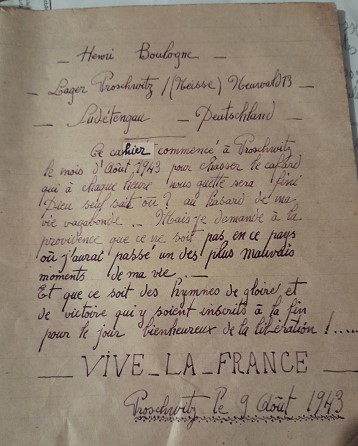 — Henri Boulogne —
— Lager Proschwitz / (Neisse) Neurald B —
— Sudétengau — Deutschland —
Ce cahier commencé à Proschwitz
le mois d'Août 1943 pour chasser le cafard
qui à chaque heure nous guette sera fini
Dieu seul sait où ? au hasard de ma
vie vagabonde .. Mais je demande à la
providence que ce ne soit pas en ce pays
où j'aurai passé un des plus maudits
moments de ma vie . —
Et que ce soit des hymnes de gloire et
de victoire qui y soient inscrits à la fin
pour le jour bienheureux de la libération !.....
— VIVE — LA — FRANCE —
Proschwitz le 9 Août 1943